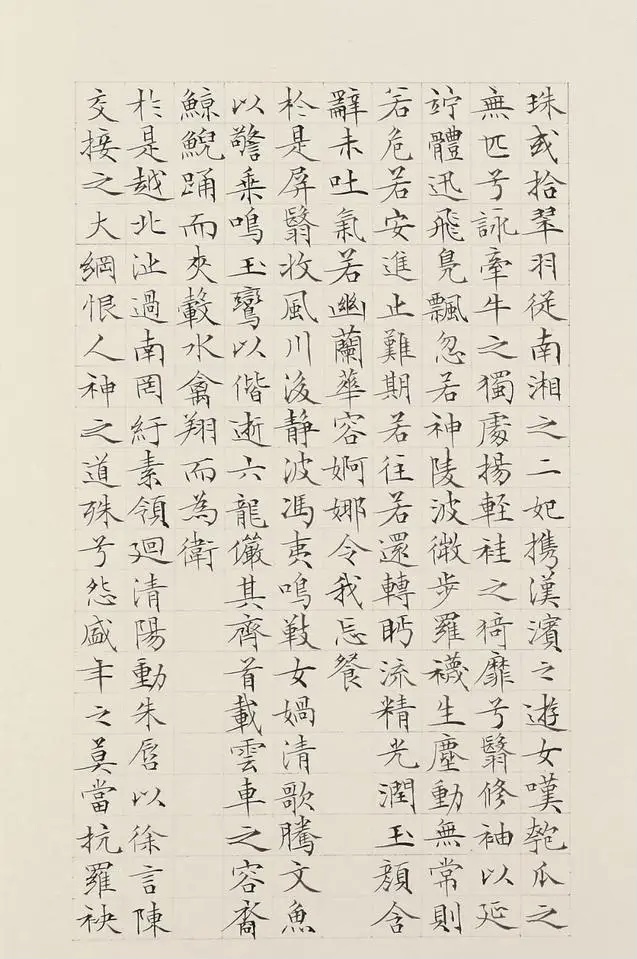 珠或拾翠羽從南湘之二妃攜漢濱之遊女嘆匏瓜之
無匹兮詠牽牛之獨處揚輕袿之猗靡兮翳修袖以延
竚體迅飛鳧飄忽若神陵波微步羅襪生塵動無常則
若危若安進止難期若往若還轉眄流精光潤玉顏含
辭未吐氣若幽蘭華容婀娜令我忘餐
於是屏翳收風川後静波馮夷鳴鼓女媧清歌騰文魚
以警乘鳴玉鸞以偕逝六龍儼其齊首載雲車之容裔
鯨鯢踊而夾轂水禽翔而為衛
於是越北沚過南岡紆素領迴清陽動朱唇以徐言陳
交接之大綱恨人神之道殊兮怨盛年之莫當抗羅袂